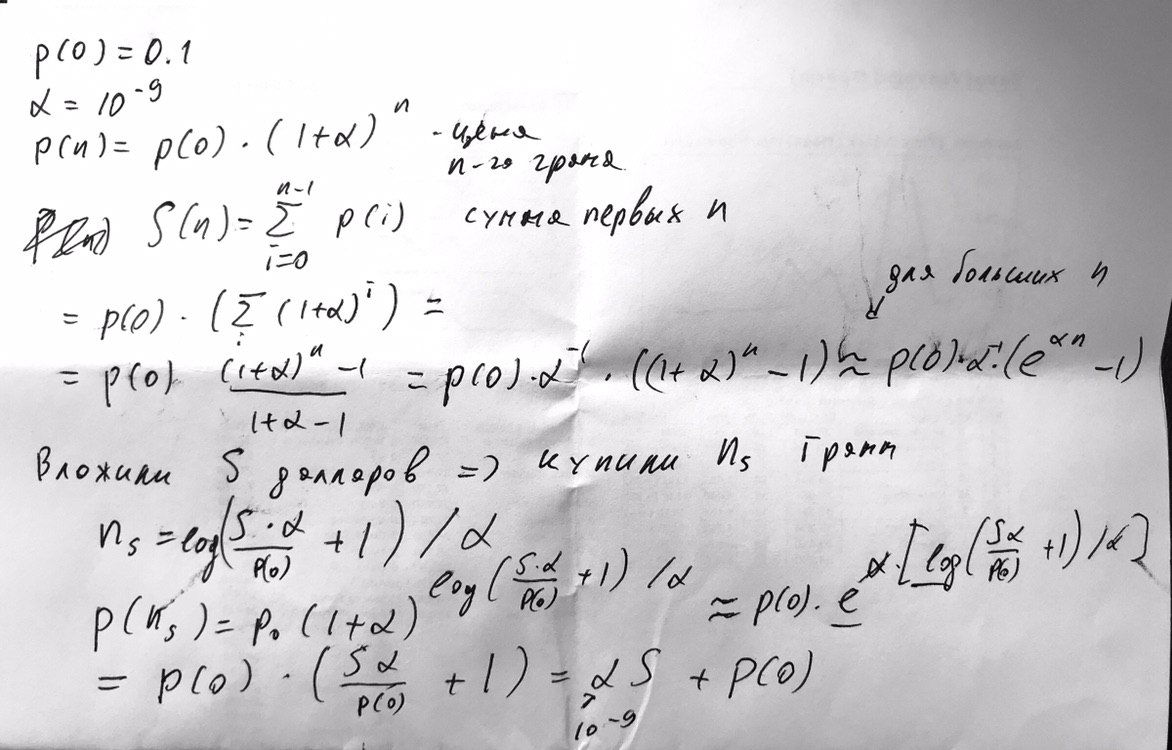 p(0) = 0.1
α = 10⁻⁹
p(n) = p(0) · (1+α)ⁿ - цена
n-го грама
S(n) = Σ_{i=0}^{n-1} p(i) сумма первых n
для больших n
= p(0) · (Σ_i (1+α)^i) =
= p(0) ((1+α)ⁿ - 1)/(1+α-1) = p(0)·α⁻¹ · ((1+α)ⁿ - 1) ≈ p(0)·α⁻¹·(e^{αn} - 1)
Вложили S долларов => купили n_s грамм
n_s = log(S·α/p(0) + 1) / α
p(n_s) = p₀ (1+α)^{log(S·α/p(0) + 1) / α} ≈ p(0) · e^{α·[log(Sα/p(0) + 1)/α]}
= p(0) · (Sα/p(0) + 1) = αS + p(0)
10⁻⁹